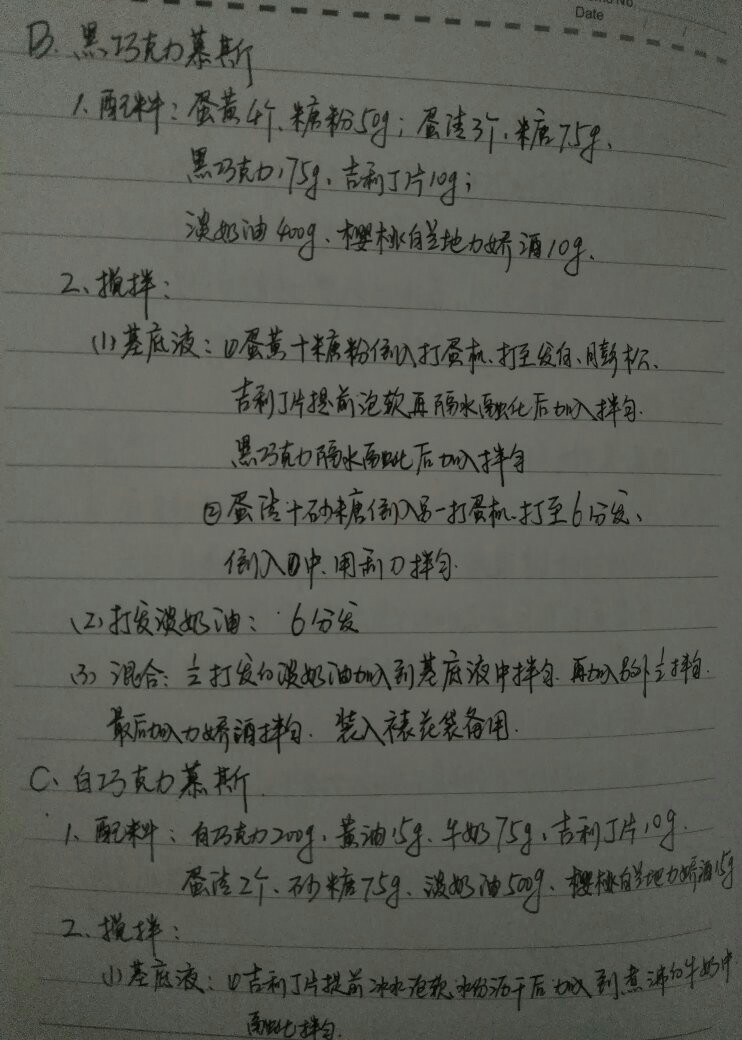 No
Date
B. 黑巧克力慕斯
1. 配料：蛋黄4个、糖粉50g；蛋清3个、糖75g、
黑巧克力175g、吉利丁片10g；
淡奶油400g、樱桃白兰地力娇酒10g、
2、搅拌：
(1)基底液：①蛋黄+糖粉倒入打蛋机、打至发白、膨松、
吉利丁片提前泡软再隔水融化后加入拌匀.
黑巧克力隔水融化后加入拌匀
②蛋清+砂糖倒入另一打蛋机、打至6分发、
倒入①中、用刮刀拌匀.
(2)打发淡奶油：6分发
(3) 混合：½打发的淡奶油加入到基底液中拌匀. 再加入另外½拌匀.
最后加入力娇酒拌匀. 装入裱花袋备用.
C、白巧克力慕斯
1、配料：白巧克力200g、黄油15g、牛奶75g、吉利丁片10g.
蛋清2个、砂糖75g、淡奶油500g、樱桃白兰地力娇酒15g
2、搅拌：
(1)基底液：①吉利丁片提前冰水泡软、水份沥干后加入到煮沸的牛奶中
融化拌匀.